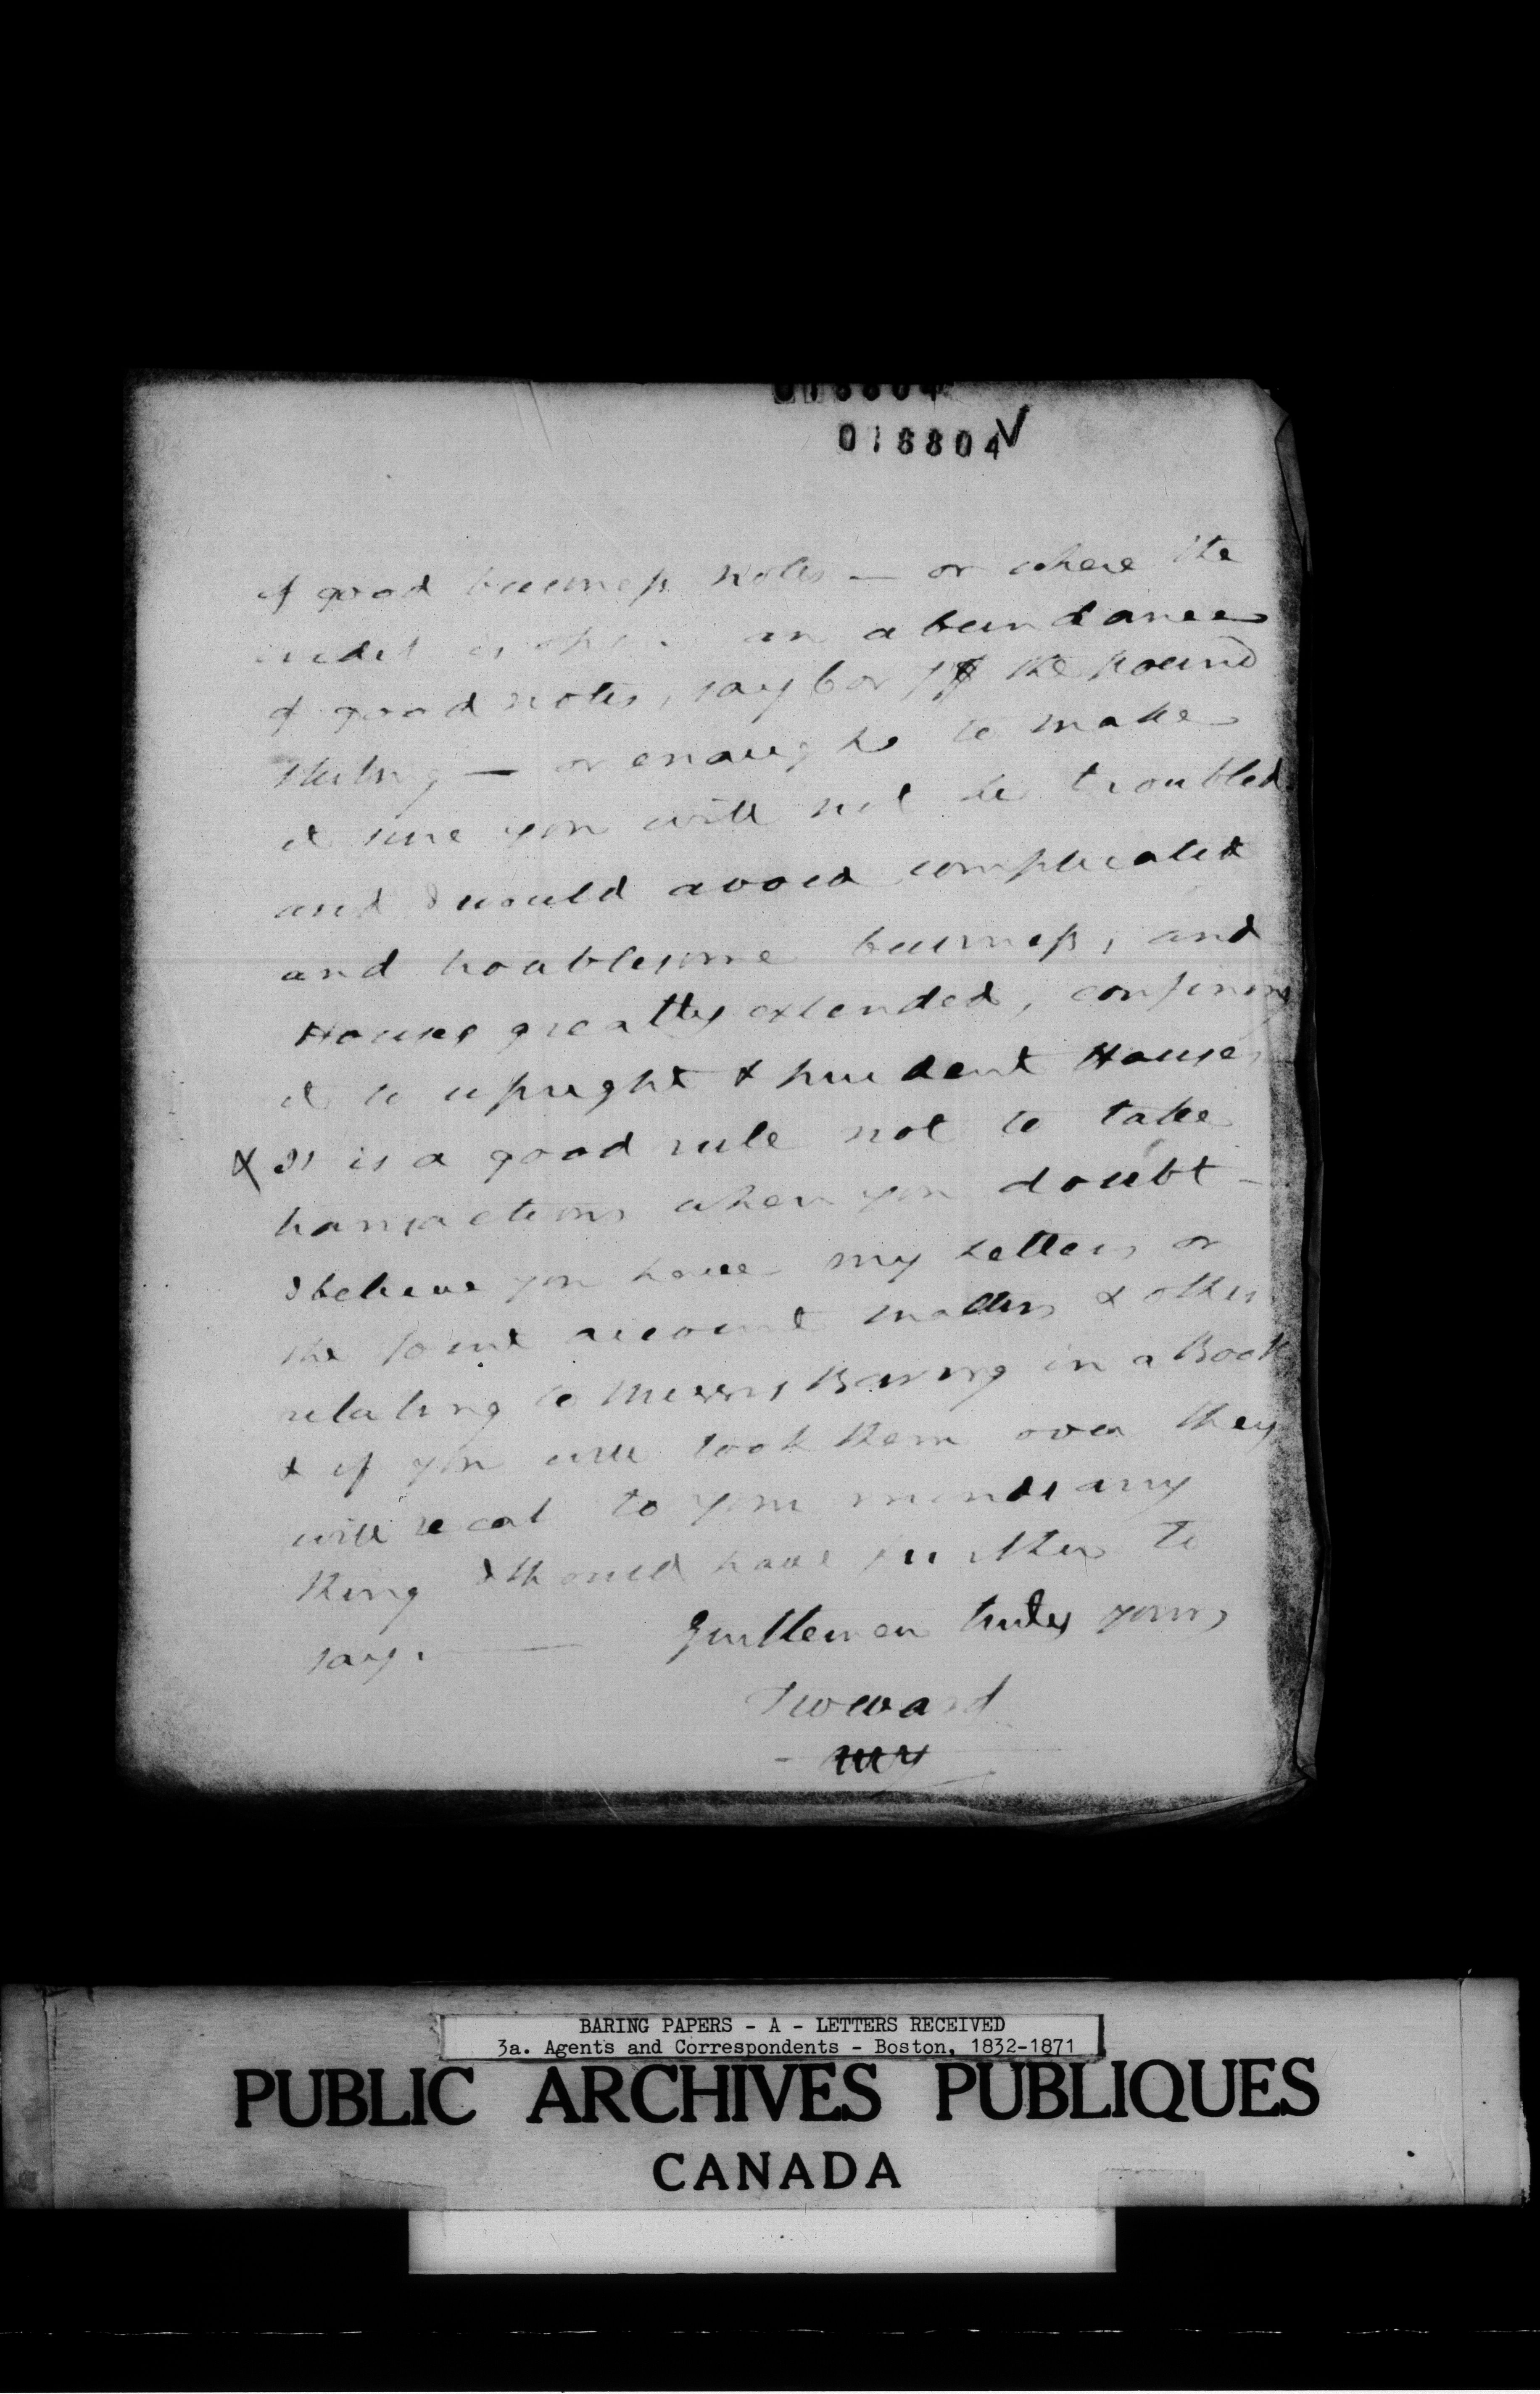 016804
016804 V
of good business notes — or where the
credit is open an abundance
of good notes, say 6 or 7$ the pound
sterling — or enough to make
it sure you will not be troubled
and I would avoid complicated
and troublesome business, and
Houses greatly extended, confining
it to upright & prudent Houses —
X It is a good rule not to take
transactions when you doubt —
I believe you have my letters or
the joint account matters & other
relating to Messrs Baring in a Book
& if you will look them over they
will recal to your minds any
thing I should have further to
say. — Gentlemen truly yours,
T W Ward
BARING PAPERS - A - LETTERS RECEIVED
3a. Agents and Correspondents - Boston, 1832-1871
PUBLIC ARCHIVES PUBLIQUES
CANADA